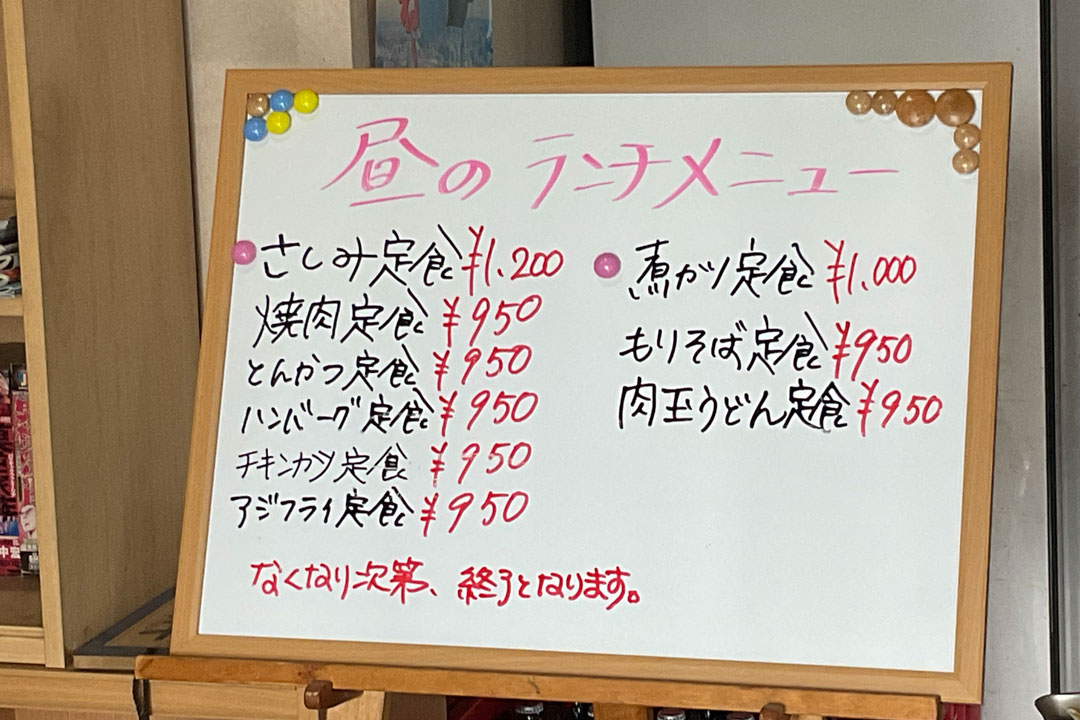 昼のランチメニュー
さしみ定食 ¥1.200
焼肉定食 ¥950
とんかつ定食 ¥950
ハンバーグ定食 ¥950
チキンカツ定食 ¥950
アジフライ定食 ¥950
煮カツ定食 ¥1.000
もりそば定食 ¥950
肉玉うどん定食 ¥950
なくなり次第、終了となります。